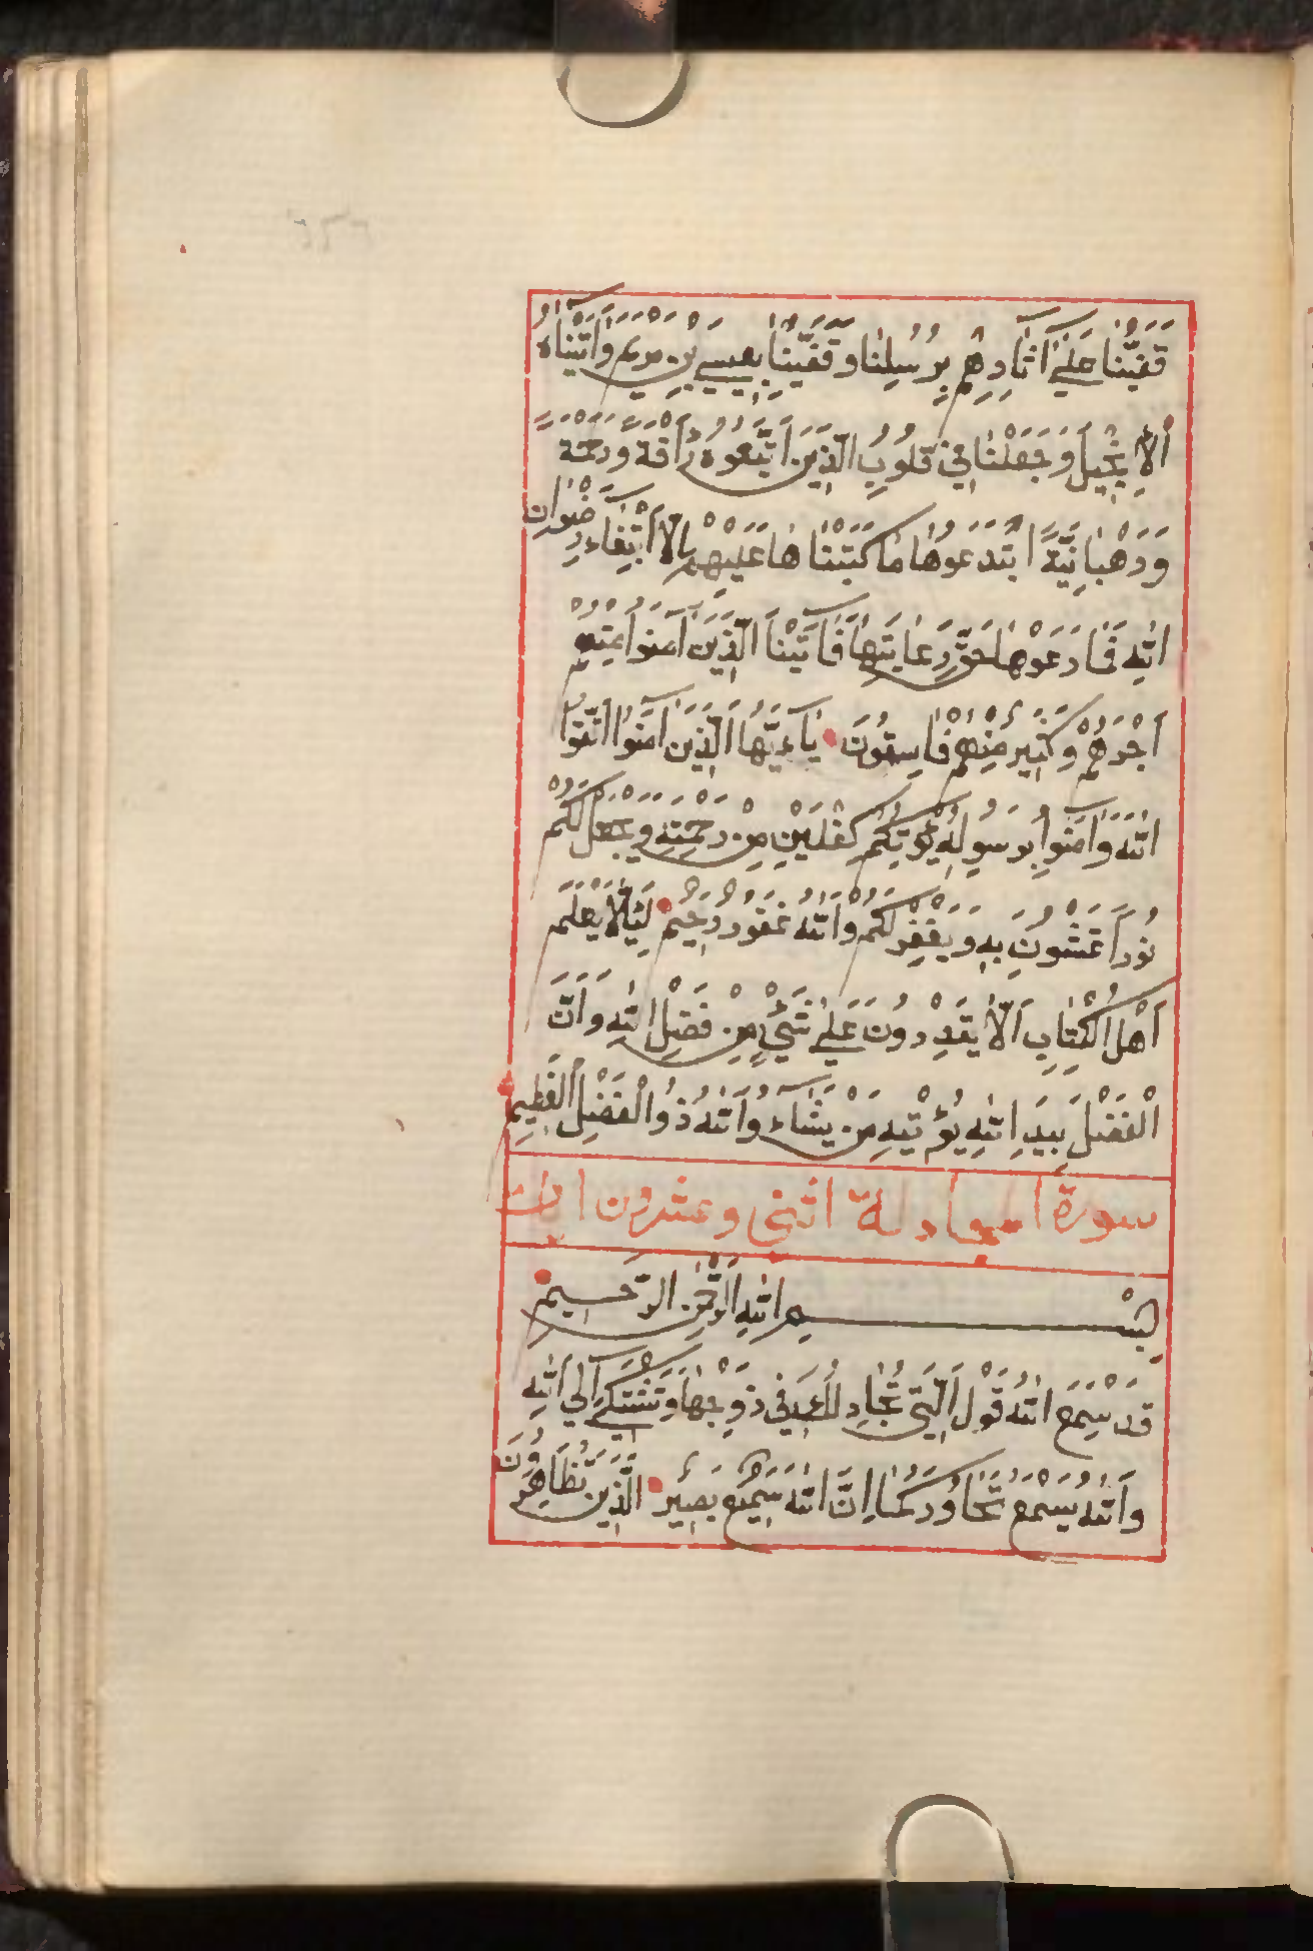 قَفَّيْنَا عَلَىٰ آثَارِهِمْ بِرُسُلِنَا وَقَفَّيْنَا بِعِيسَى بْنِ مَرْيَمَ وَآتَيْنَاهُ
الْإِنْجِيلَ وَجَعَلْنَا فِي قُلُوبِ الَّذِينَ اتَّبَعُوهُ رَأْفَةً وَرَحْمَةً
وَرَهْبَانِيَّةً ابْتَدَعُوهَا مَا كَتَبْنَاهَا عَلَيْهِمْ إِلَّا ابْتِغَاءَ رِضْوَانِ
اللّٰهِ فَمَا رَعَوْهَا حَقَّ رِعَايَتِهَا فَآتَيْنَا الَّذِينَ آمَنُوا مِنْهُمْ
أَجْرَهُمْ وَكَثِيرٌ مِنْهُمْ فَاسِقُونَ يَاءَيُّهَا الَّذِينَ آمَنُوا اتَّقُوا
اللّٰهَ وَآمِنُوا بِرَسُولِهِ يُؤْتِكُمْ كِفْلَيْنِ مِنْ رَحْمَتِهِ وَيَجْعَلْ لَكُمْ
نُورًا تَمْشُونَ بِهِ وَيَغْفِرْ لَكُمْ وَاللّٰهُ غَفُورٌ رَحِيمٌ لِئَلَّا يَعْلَمَ
أَهْلُ الْكِتَابِ أَلَّا يَقْدِرُونَ عَلَىٰ شَيْءٍ مِنْ فَضْلِ اللّٰهِ وَأَنَّ
الْفَضْلَ بِيَدِ اللّٰهِ يُؤْتِيهِ مَنْ يَشَاءُ وَاللّٰهُ ذُو الْفَضْلِ الْعَظِيمِ
سورة المجادلة اثنى وعشرون ايات
بِسْمِ اللّٰهِ الرَّحْمٰنِ الرَّحِيمِ
قَدْ سَمِعَ اللّٰهُ قَوْلَ الَّتِي تُجَادِلُكَ فِي زَوْجِهَا وَتَشْتَكِي إِلَى اللّٰهِ
وَاللّٰهُ يَسْمَعُ تَحَاوُرَكُمَا إِنَّ اللّٰهَ سَمِيعٌ بَصِيرٌ الَّذِينَ يُظَاهِرُونَ